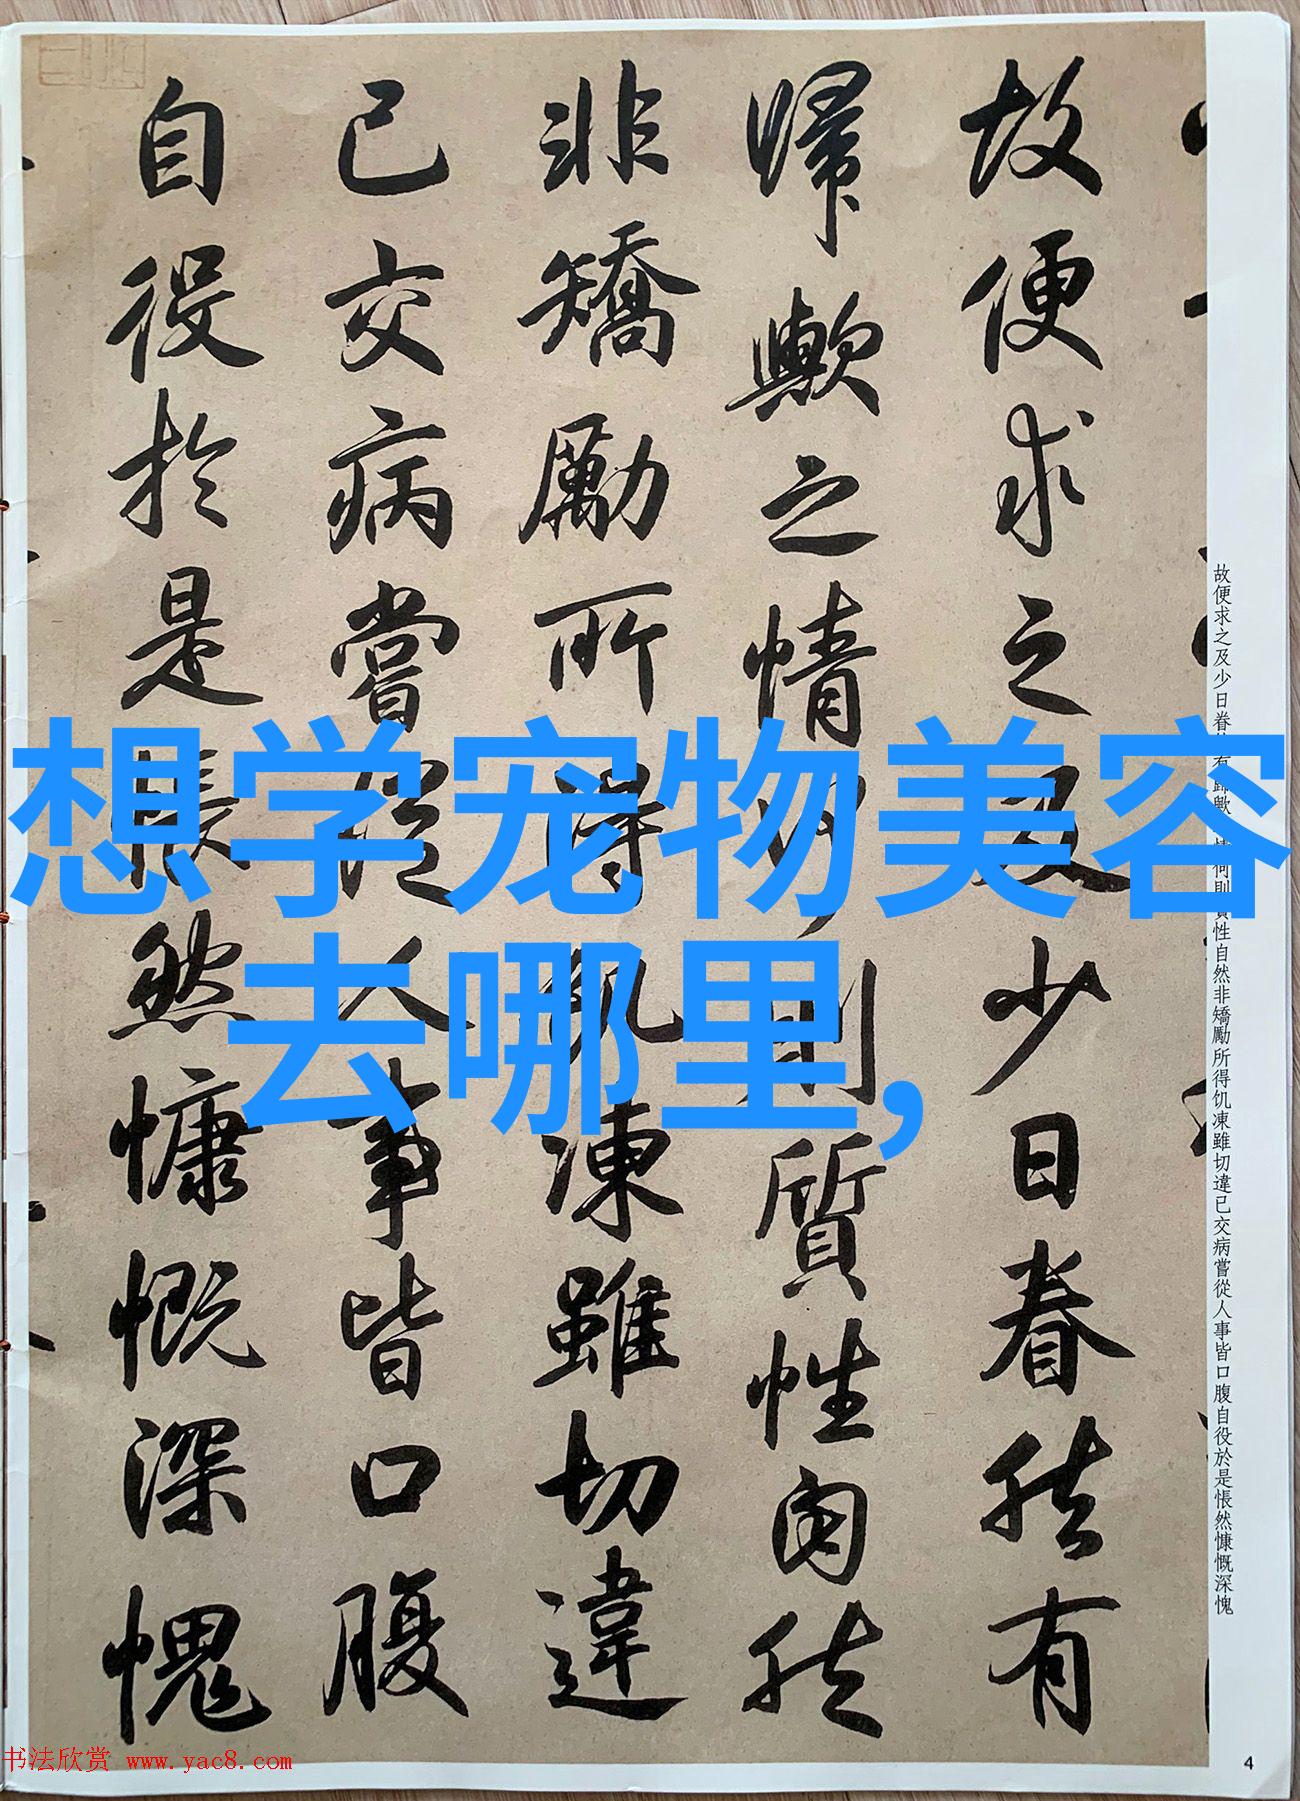 想学宠物美容
去哪里,
故便求之及少日眷然有
歸歟之情何則質性自然
非矯勵所得飢凍雖切違
已交病嘗從人事皆口腹
自役於是悵然慷慨深愧
故便求之及少日眷有歸歟情何則質性自然非矯勵所得饥凍雖切違已交病嘗從人事皆口腹自役於是悵然慷慨深愧
4
书法欣赏 www.yac8.com